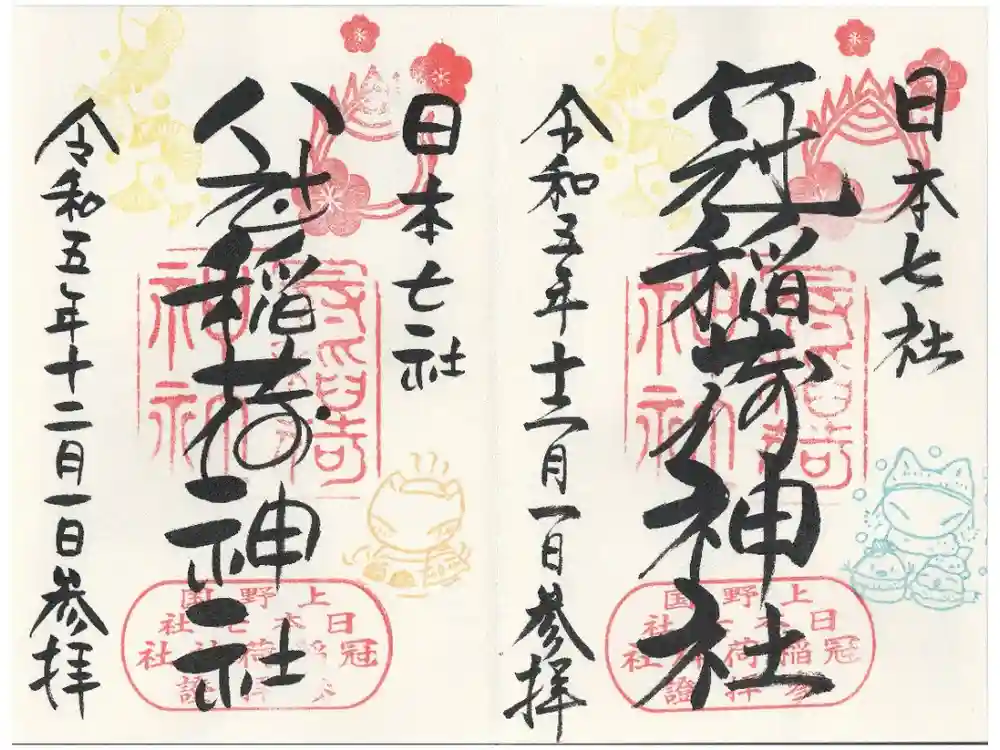 日本七社
冠稲荷神社
令和五年十二月一日参拝
上野国
日本七社
冠稲荷神社
参拝證
日本七社
冠稲荷神社
令和五年十二月一日參拝
上野国
日本七社
冠稲荷神社
参拝證